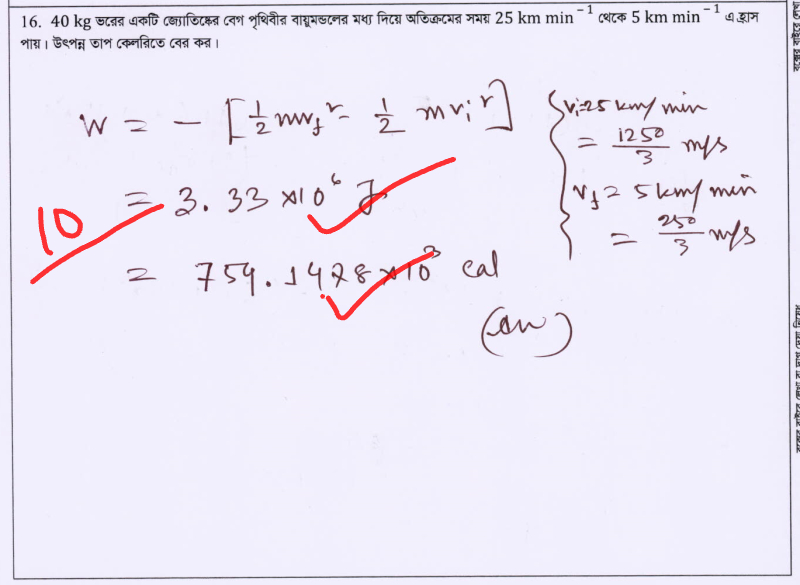 16. 40 kg ভরের একটি জ্যোতিষ্কের বেগ পৃথিবীর বায়ুমন্ডলের মধ্য দিয়ে অতিক্রমের সময় 25 km min⁻¹ থেকে 5 km min⁻¹ এ হ্রাস
পায়। উৎপন্ন তাপ কেলরিতে বের কর।
W = - [½ mv_f² - ½ mv_i²]
= 3.33 × 10⁶ J
= 754.1478 × 10³ cal
(Ans)
v_i = 25 km/min
= 1250/3 m/s
v_f = 5 km/min
= 250/3 m/s
10